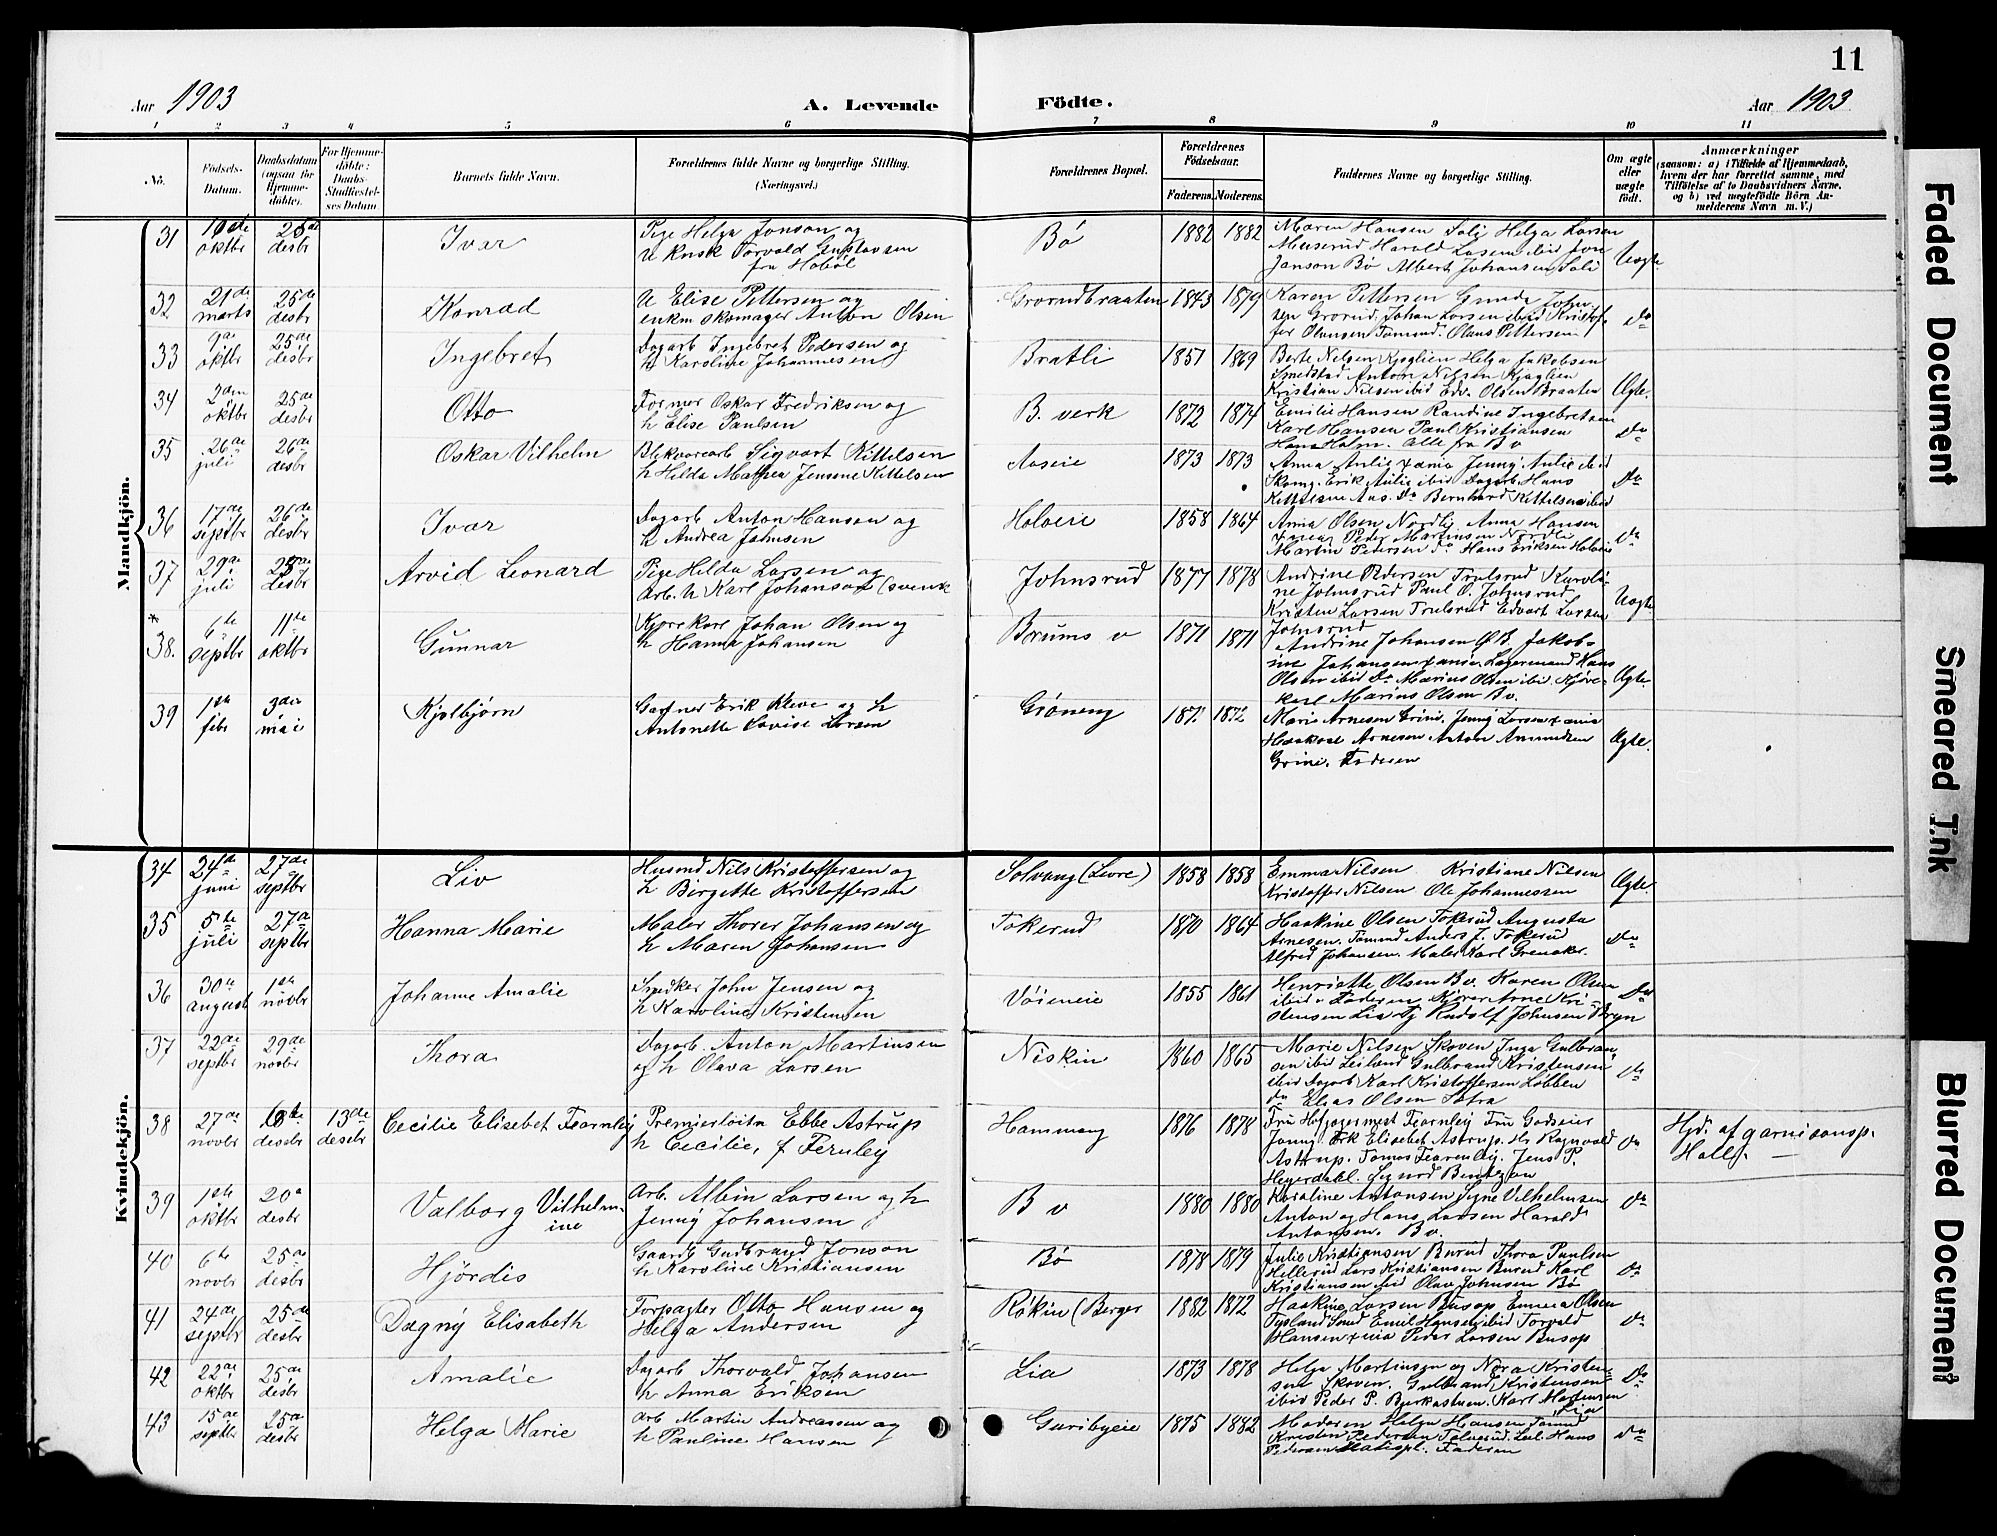 11
Aar 1903
A. Levende
Födte.
Aar 1903
1 2 3 4 5 6 7 8 9 10 11
No.
Födsels-Datum.
Daabsdatum (ogsaa for Hjemme-döbte).
For Hjemme-döbte: Daabs-Stadfæstel-ses Datum
Barnets fulde Navn.
Forældrenes fulde Navne og borgerlige Stilling.
(Næringsvei.)
Forældrenes Bopæl.
Forældrenes Födselsaar.
Faderens. Moderens.
Faddernes Navne og borgerlige Stilling.
Om ægte eller uægte födt.
Anmærkninger
(saasom: a) i Tilfælde af Hjemmedaab,
hvem der har forrettet samme, med
Tilföielse af to Daabsvidners Navne,
og b) ved uægtefödte Börn An-
melderens Navn m. V.)
Mandkjön.
31 oktbr 25de desbr Ivar Pige Helga Jonson og
U Knsk Torvald Gustavsen
fra Hobøl
Bø 1882 1882 Maren Hansen Soli Helga Larsen
Muserud Harald Larsen ibid Jon
Janson Bø Albert Johansen Soli
Uægte
32 21de marts 25de desbr Konrad U Elise Pettersen og
enkm skomager Anton Olsen
Grorudbraaten 1843 1879 Karen Pettersen Gunda John-
sen Grorud, Johan Larsen ibid Kristof-
fer Olausen Tomund. Olaus Pettersen
do
33 9de oktbr 25de desbr Ingebret Dagarb Ingebret Pedersen og
h Karoline Johannesen
Bratli 1851 1869 Berte Nilsen Kjaglien Helga Jakobsen
Smedstad Anton Nilsen Kjaglien
Kristian Nilsen ibid Edv. Olsen Braaten
Ægte.
34 2den oktbr 25de desbr Otto Former Oskar Fredriksen og
h Elise Paulsen
B. verk 1872 1874 Emilie Hansen Randine Ingebretsen
Karl Hansen Paul Kristiansen
Hans Holm. Alle fra B v
do
35 26de juli 26de desbr Oskar Vilhelm Blikvarearb Sigvart Kittelsen
h Hilda Mathea Jensine Kittelsen
Aaseie 1873 1873 Anna Aulie xania Jenny Aulie ibid
Skomg. Erik Aulie ibid Dagarb Hans
Kittelsen Aas. Do Bernhard Kittelsen ibid
Do
36 17de septbr 26de desbr Ivar Dagarb Anton Hansen og
h Andrea Johnsen
Holveie 1858 1864 Anna Olsen Nordli Anna Hansen
xania Peder Martinsen Nordli
Martin Pedersen do Hans Eriksen Holveie
do
37 29de juli desbr Arvid Leonard Pige Hilda Larsen og
Arb. U Karl Johanson (svensk
Johnsrud 1877 1878 Andrine Pedersen Trulsrud Karoli-
ne Johnsrud Paul O. Johnsrud
Kristen Larsen Trulsrud Edvart Larsen
Johnsrud
Uægte
*
38. 6te septbr 11te oktbr Gunnar Kjørekarl Johan Olsen og
h Hanna Johansen
Brums v 1871 1871 Andrine Johansen Ø B. Jakob-
ine Johansen xania. Lagermand Hans
Olsen ibid Do Marius Olsen ibid Kjøre-
karl Marius Olsen B v.
Ægte.
39 1ste febr 3die mai Kjelbjørn Gartner Erik Kleve og h
Antonette Lovise Larsen
Grøneng 1871 1872 Marie Arnesen Grini. Jenny Larsen xania
Haakon Arnesen Anton Amundsen
Grini. Faderen
Ægte.
Kvindekjön.
34 24de juni 27de septbr Liv Husmd Nils Kristoffersen og
h Birgitte Kristoffersen
Solvang (Levre) 1858 1858 Emma Nilsen Kristiane Nilsen
Kristoffer Nilsen Ole Johannessen
Ægte
35 5te juli 27de septbr Hanna Marie Maler Thorer Johansen og
h Maren Johansen
Tokerud 1870 1864 Haakine Olsen Tokerud Augusta
Arnesen. Tomund Anders J. Tokerud
Alfred Johansen. Maler Karl Grenaker.
do
36 30te august 1ste novbr Johanne Amalie Snedker John Jensen og
h Karoline Kristensen
Vøieneie 1855 1861 Henriette Olsen B v. Karen Olsen
ibid. Faderen Kjører Arne Kri-
stensen Lia Og Rudolf Johnsen Bryn
Do
37 22de septbr 29de novbr Thora Dagarb. Anton Martinsen
og h Olava Larsen
Niskin 1860 1865 Marie Nilsen Skoven Inga Gulbran-
sen ibid Leiland Gulbrand Kristensen
ibid Dagarb Karl Kristoffersen Løbben
do Elias Olsen Sætra
do
38 27de novbr desbr 13de desbr Cecilie Elisebet Fearnley Premierløitn Ebbe Astrup
h Cecilie, f Fernley
Hammang 1876 1878 Fru Hofjægermest Fearnley Fru Godseier
Young Frk Elisebet Astrup. Hr Ragnvald
Astrup. Tomas Fearnley, Jens P.
Heyerdahl. Sigurd Bentzon
do
Hjd. af garnisonsp.
Hall. —
39 1ste oktbr 20de desbr Valborg Vilhelm-
ine
Arb. Albin Larsen og h
Jenny Johansen
B v 1880 1880 Karoline Antonsen Signe Vilhelmsen
Anton og Hans Larsen Harald
Antonsen. B v.
do
40 6te novbr 25de desbr Hjørdis Gaardb Gudbrand Jonson
h Karoline Kristiansen
Bø 1878 1879 Julie Kristiansen Burud Thora Paulsen
Hellerud Lars Kristiansen Burud Karl
Kristiansen ibid Olav Johnsen Bø
do
41 24de septbr 25de desbr Dagny Elisabeth Forpagter Otto Hansen og
Helga Andersen
Røkin (Berger 1882 1872 Haakine Larsen Busop Emma Olsen
Tysland Smd Emil Hansen ibid Torvald
Hansen xania Peder Larsen Busop
do
42 22de oktbr 25de desbr Amalie Dagarb Thorvald Johansen
h Anna Eriksen
Lia 1873 1878 Helga Martinsen og Nora Kristen-
sen Skoven. Gulbrand Kristensen
ibid Peder P. Bjerkastuen. Karl Martensen
Lia
Do
43 15de septbr 25de desbr Helga Marie Arb Martin Andreassen og
h Pauline Hansen
Guribyeie 1875 1882 Moderen Helga Hansen Tomund
Kristen Pedersen Tolverud. Leil. Hans
Pedersen Slatespl. Faderen
do
Faded Document
Smeared Ink
Blurred Document